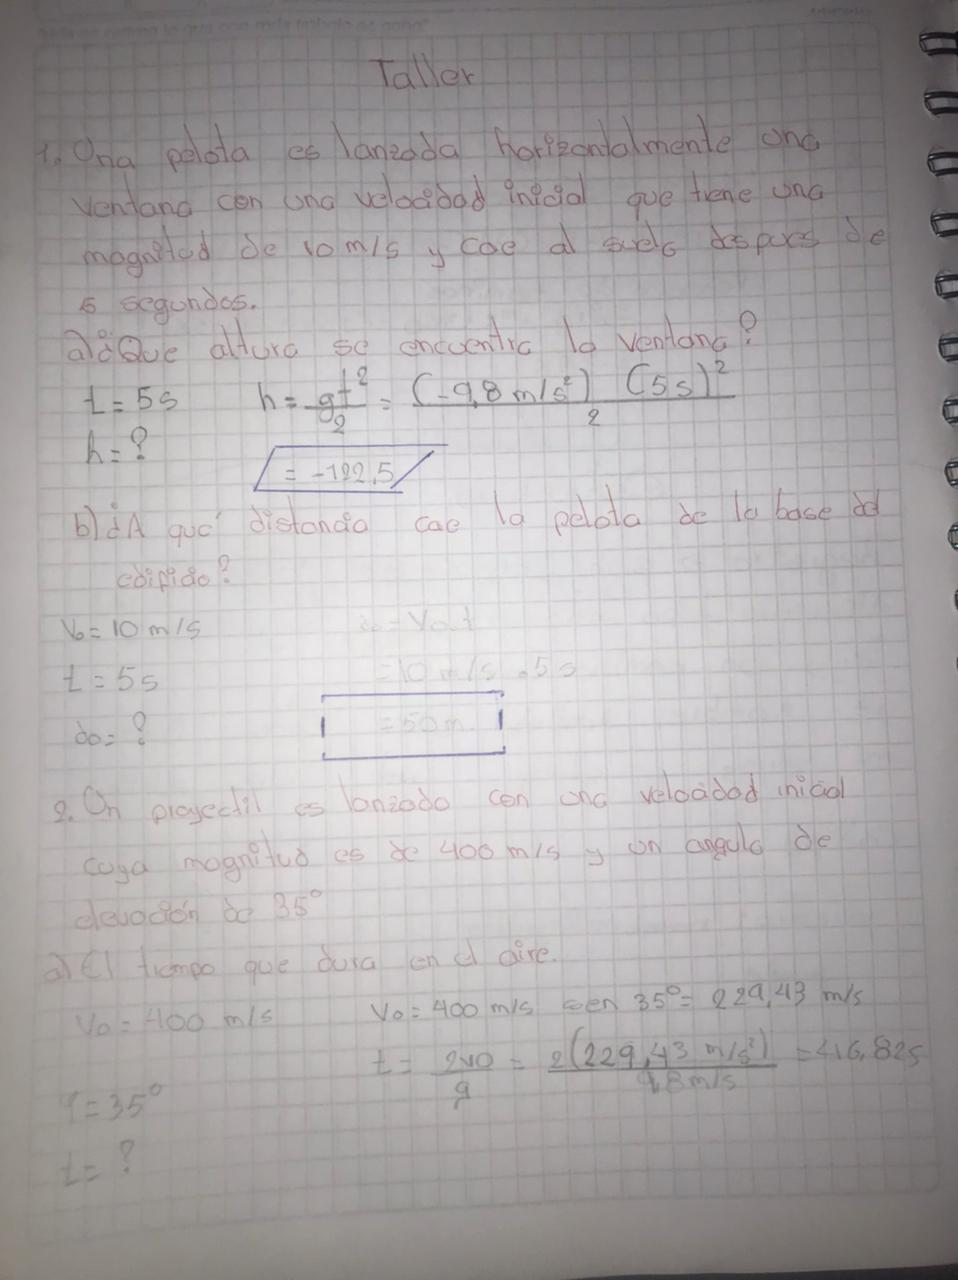 Taller
1. Una pelota es lanzada horizontalmente una
ventana con una velocidad inicial que tiene una
magnitud de 10 m/s y cae al suelo despues de
5 segundos.
a) ¿Que altura se encuentra la ventana?
t = 5s h = gt²/2 = (-9,8 m/s²) (5s)²/2
h = ?
= -122,5
b) ¿A qué distancia cae la pelota de la base del
edificio?
Vo = 10 m/s = Vo.t
t = 5s = 10 m/s . 5s
do = ? = 50m
2. Un proyectil es lanzado con una velocidad inicial
cuya magnitud es de 400 m/s y un angulo de
elevación de 35°
a) El tiempo que dura en el aire.
Vo = 400 m/s Vo = 400 m/s sen 35° = 229,43 m/s
t = 2vo/g = 2(229,43 m/s²)/9,8 m/s = 46,82s
= 35°
t = ?